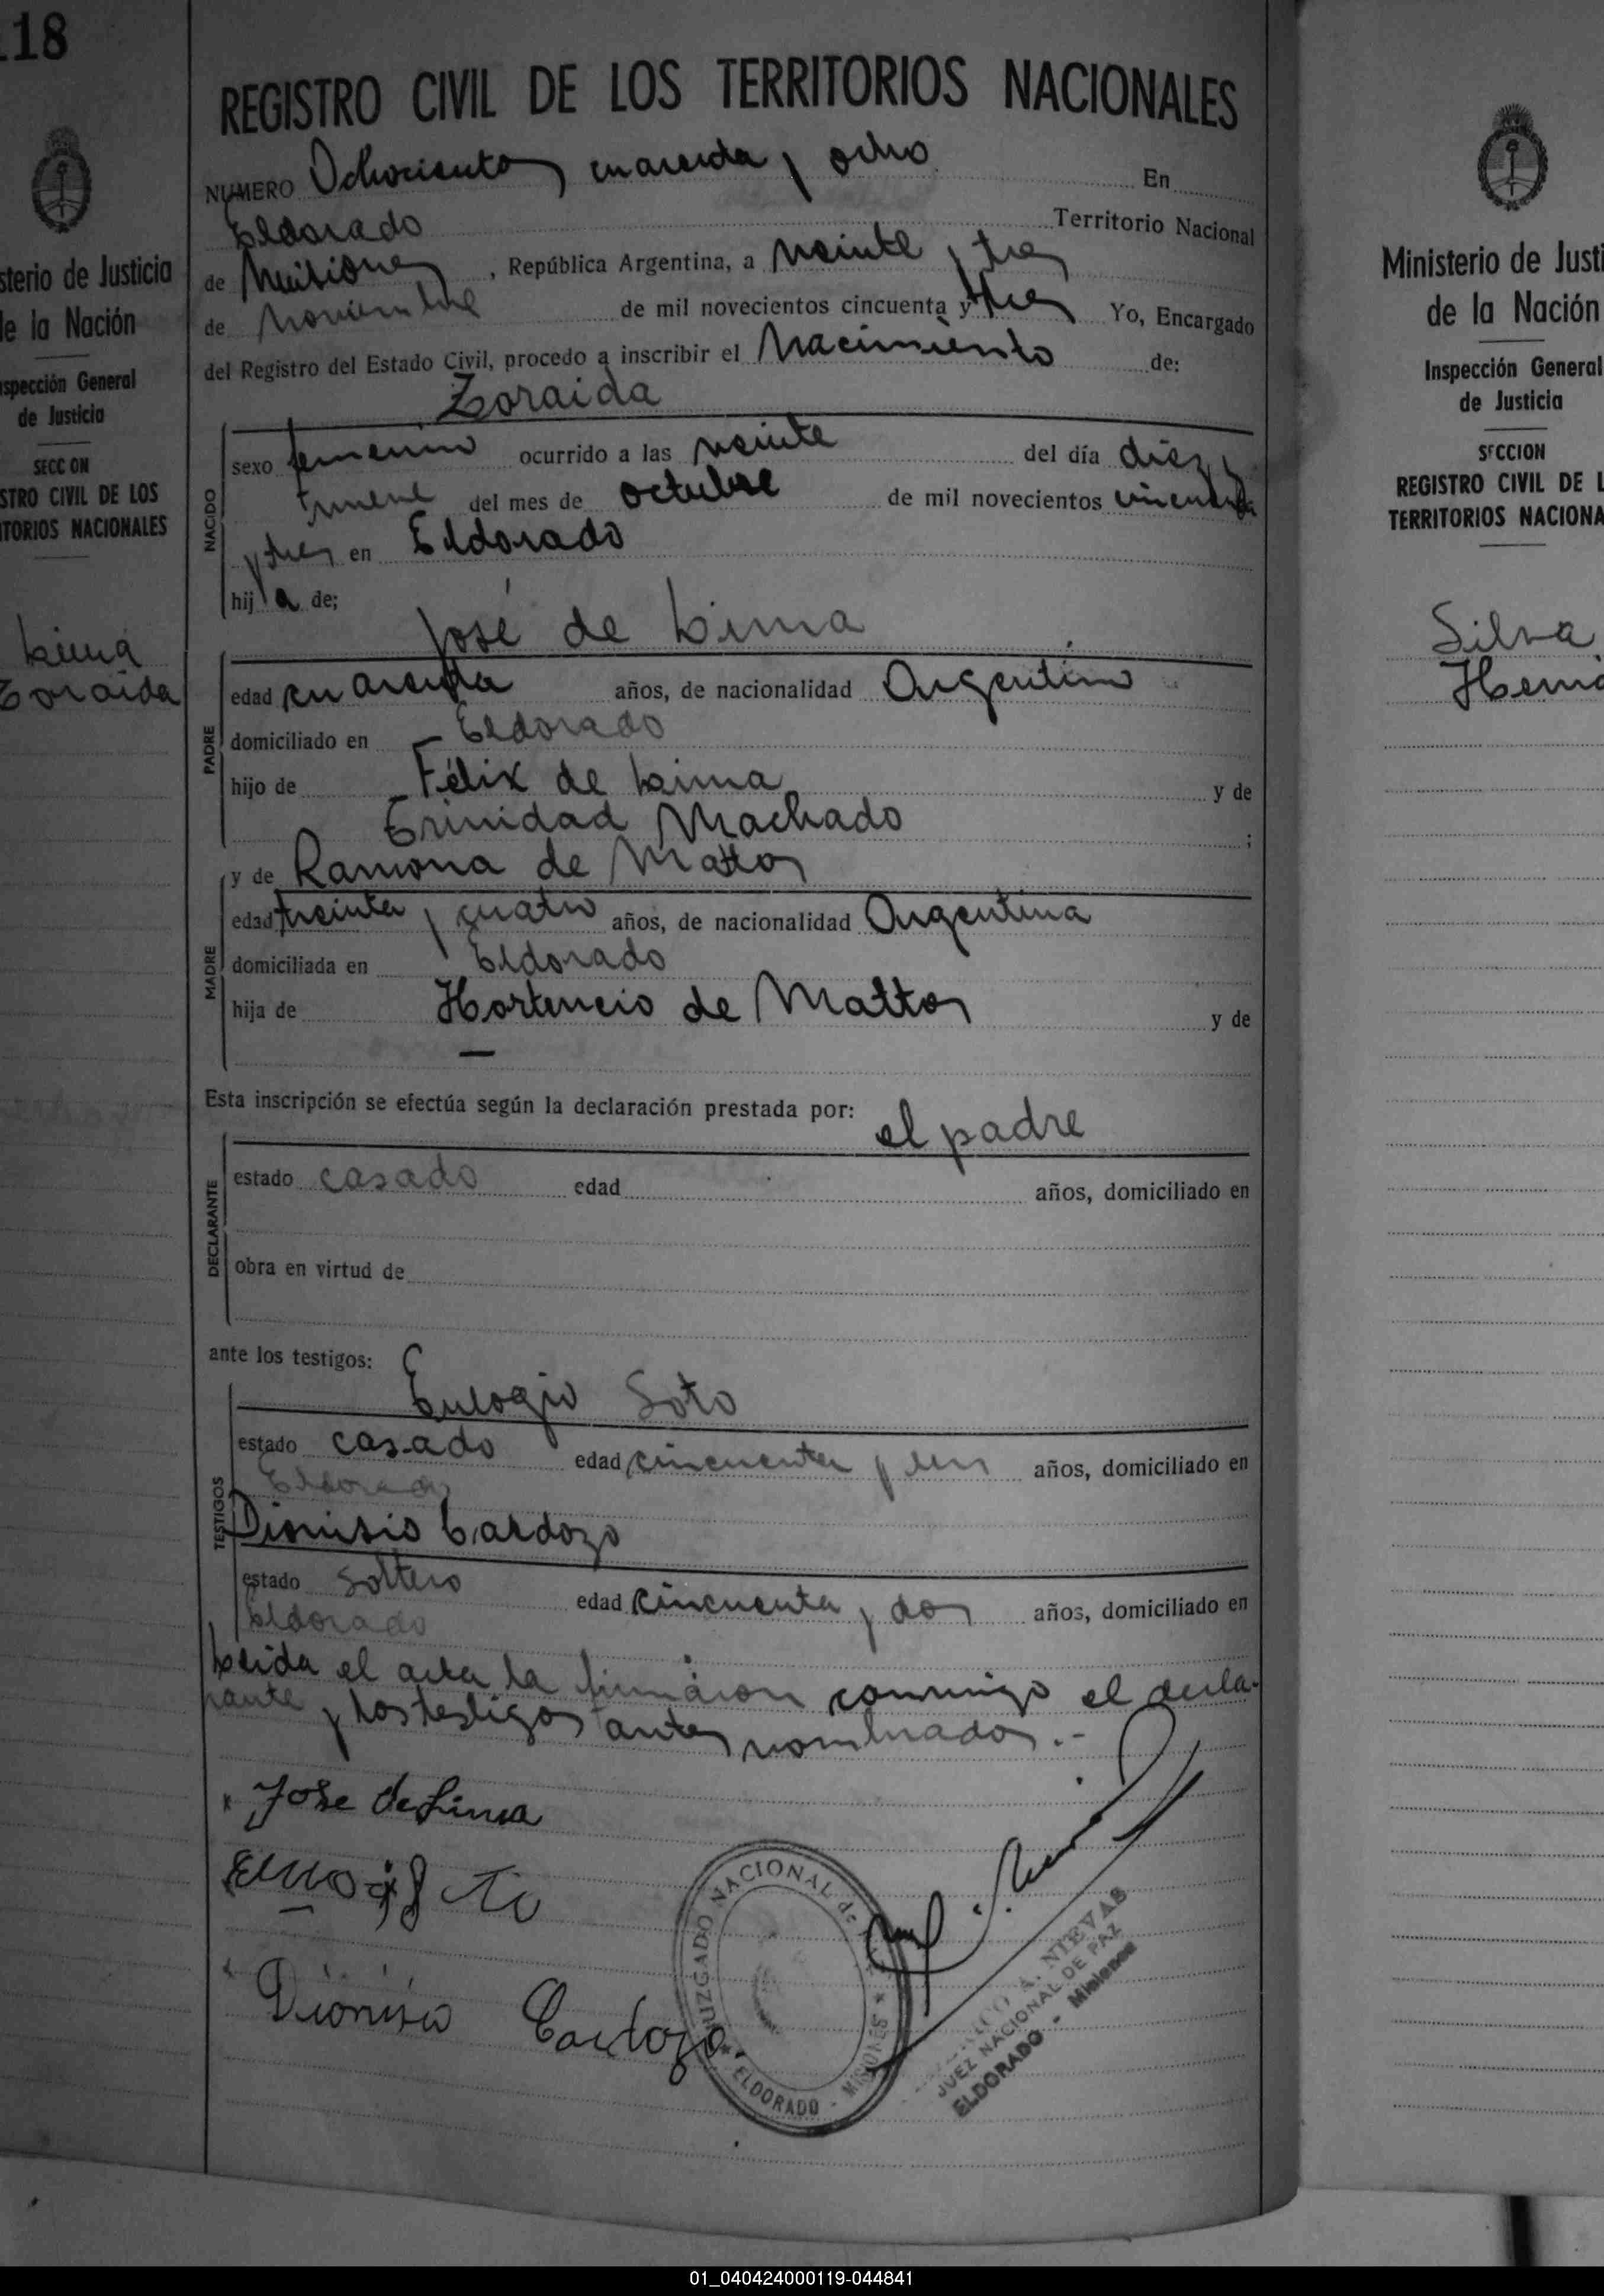 118
sterio de Justicia
de la Nación
spección General
de Justicia
SECC ON
STRO CIVIL DE LOS
ITORIOS NACIONALES
Lima
Zoraida
REGISTRO CIVIL DE LOS TERRITORIOS NACIONALES
NUMERO Ochocientos cuarenta y ocho En
Eldorado Territorio Nacional
de Misiones, República Argentina, a veinte y tres
de noviembre de mil novecientos cincuenta y tres Yo, Encargado
del Registro del Estado Civil, procedo a inscribir el Nacimiento de:
Zoraida
NACIDO
sexo femenino ocurrido a las veinte del día diez y
nueve del mes de octubre de mil novecientos cincuenta
y tres en Eldorado
hij a de;
José de Lima
PADRE
edad cuarenta años, de nacionalidad Argentino
domiciliado en Eldorado
hijo de Félix de Lima y de
Trinidad Machado ;
y de Ramona de Mattos
MADRE
edad treinta y cuatro años, de nacionalidad Argentina
domiciliada en Eldorado
hija de Hortencio de Mattos y de
—
Esta inscripción se efectúa según la declaración prestada por: el padre
DECLARANTE
estado casado edad años, domiciliado en
obra en virtud de
ante los testigos:
Eulogio Soto
TESTIGOS
estado casado edad cincuenta y un años, domiciliado en
Eldorado
Dionisio Cardozo
estado soltero edad cincuenta y dos años, domiciliado en
Eldorado
Leida el acta la firmaron conmigo el decla-
rante y los testigos antes nombrados.-
Jose de Lima
Dionisio Cardozo.
JUZGADO NACIONAL de
ELDORADO - MISIONES
A. NIEVAS
JUEZ NACIONAL DE PAZ
ELDORADO - Misiones
Ministerio de Justi
de la Nación
Inspección General
de Justicia
SECCION
REGISTRO CIVIL DE L
TERRITORIOS NACIONA
Silva
01_040424000119-044841